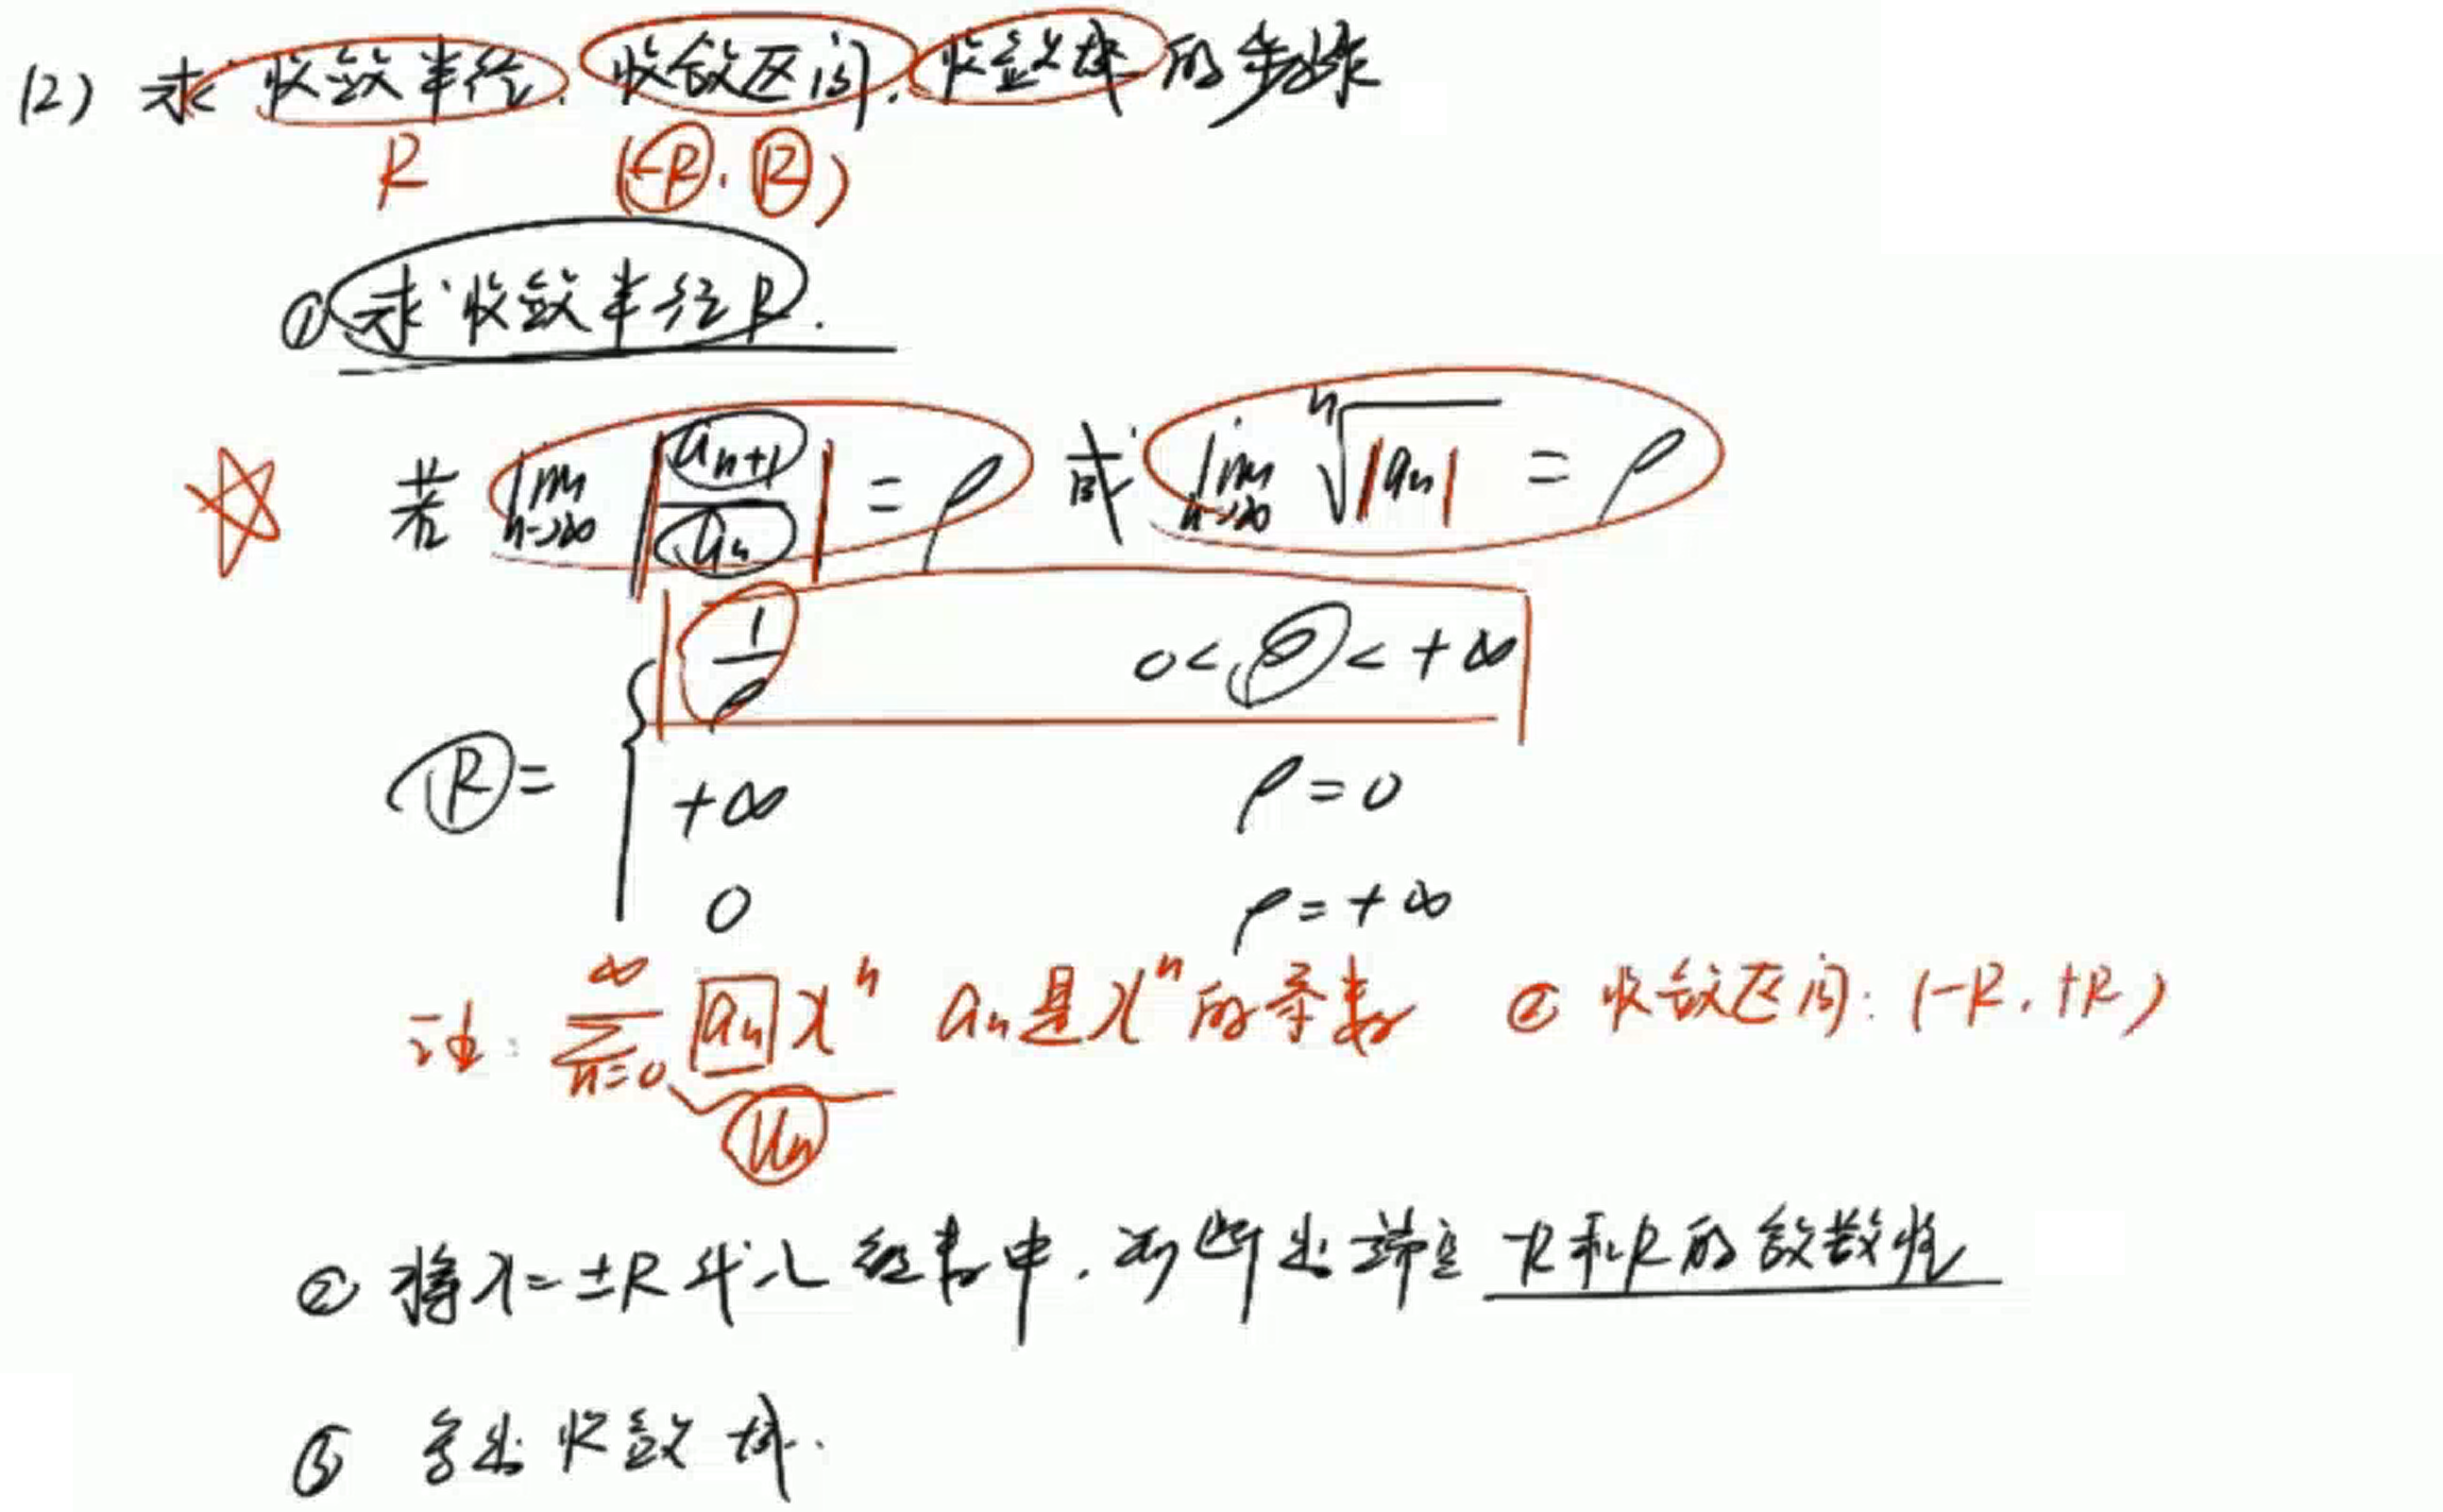 (2) 求收敛半径. 收敛区间. 收敛域的步骤
R (-R, R)
① 求收敛半径R.
☆ 若 lim n→∞ |a_{n+1}/a_n| = ρ 或 lim n→∞ ⁿ√|a_n| = ρ
R = { 1/ρ 0<ρ<+∞
+∞ ρ=0
0 ρ=+∞
注: ∑_{n=0}^{∞} a_n xⁿ a_n是xⁿ的系数 ② 收敛区间: (-R, +R)
u_n
② 将x=±R代入级数中, 判断出端点 -R和R的敛散性
③ 写出收敛域.